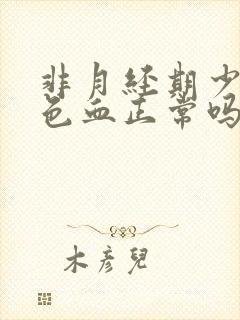 非月经期少
色血正常吗
木彦兒